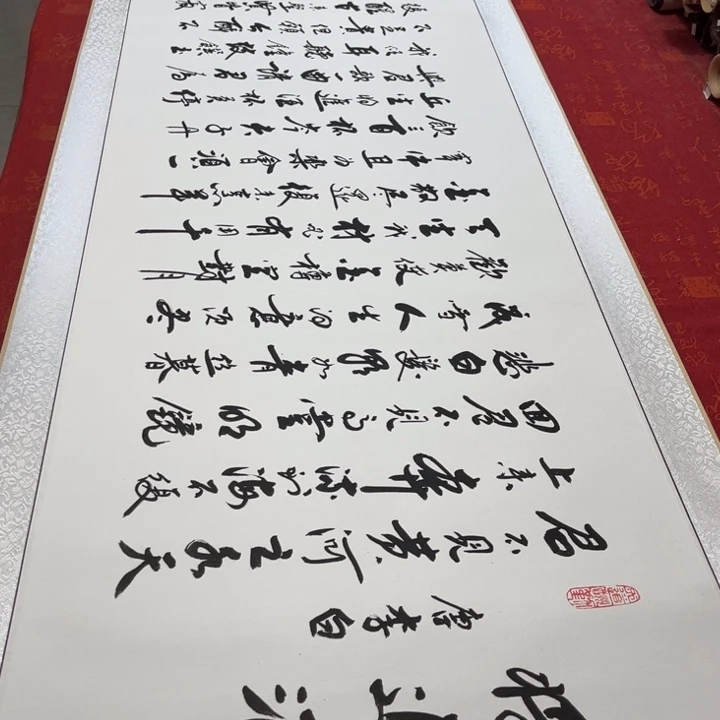 將進酒
唐李白
君不見黃河之水天
上來奔流到海不復
回君不見高堂明鏡
悲白髮朝如青絲暮
成雪人生得意須盡
歡莫使金樽空對月
天生我材必有用千
金散盡還復來烹羊
宰牛且為樂會須一
飲三百杯岑夫子丹
丘生將進酒杯莫停
與君歌一曲請君為
我傾耳聽鐘鼓饌玉
不足貴但願長醉不
復醒古來聖賢皆寂